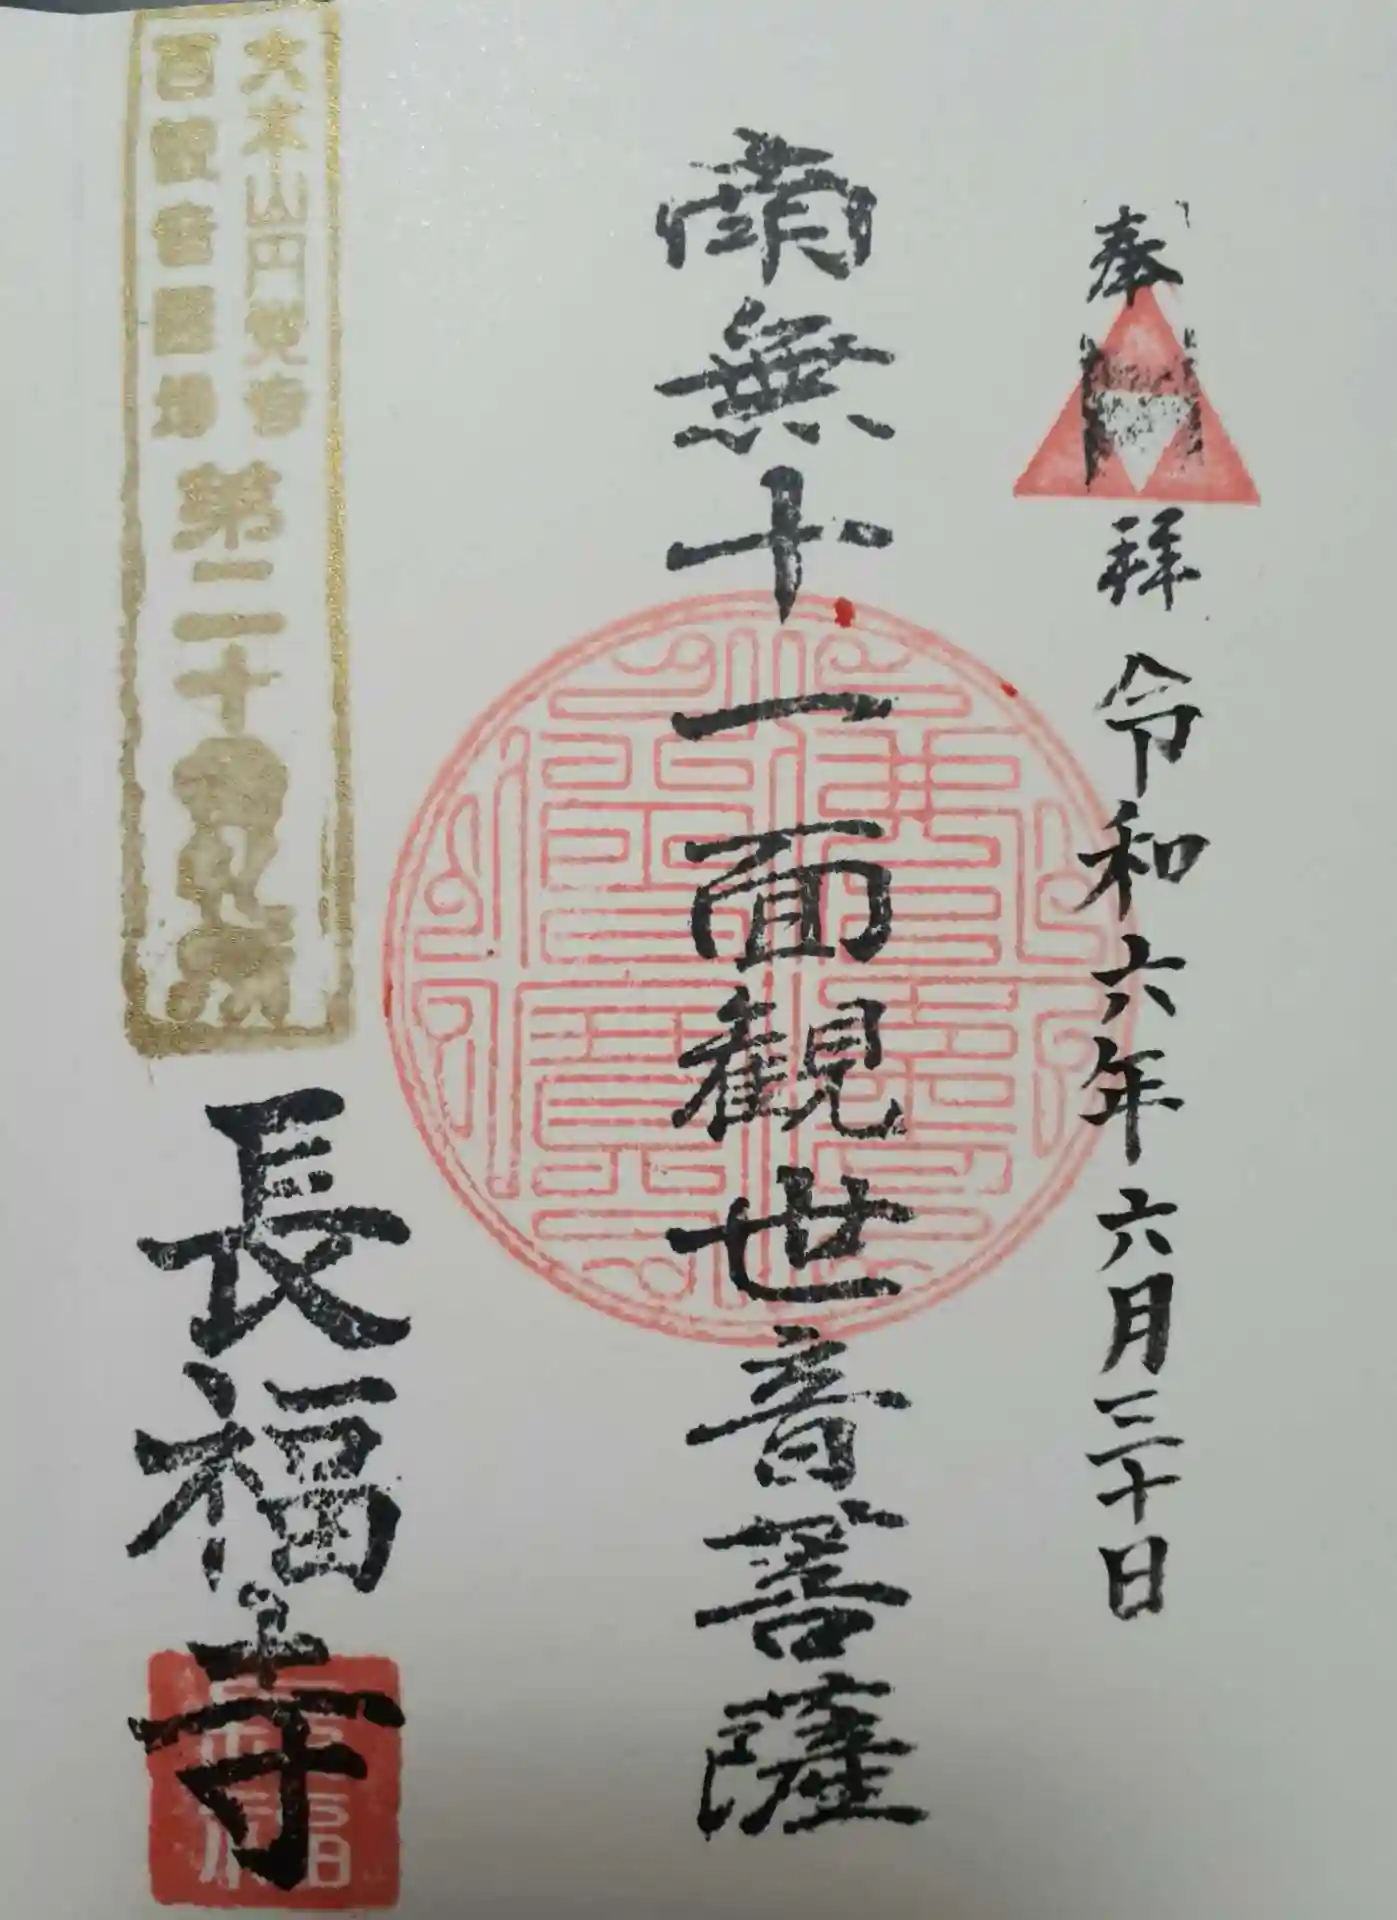 奉拝 令和六年六月三十日
南無十一面観世音菩薩
大本山円覚寺
百観音霊場
第二十番札所
長福寺